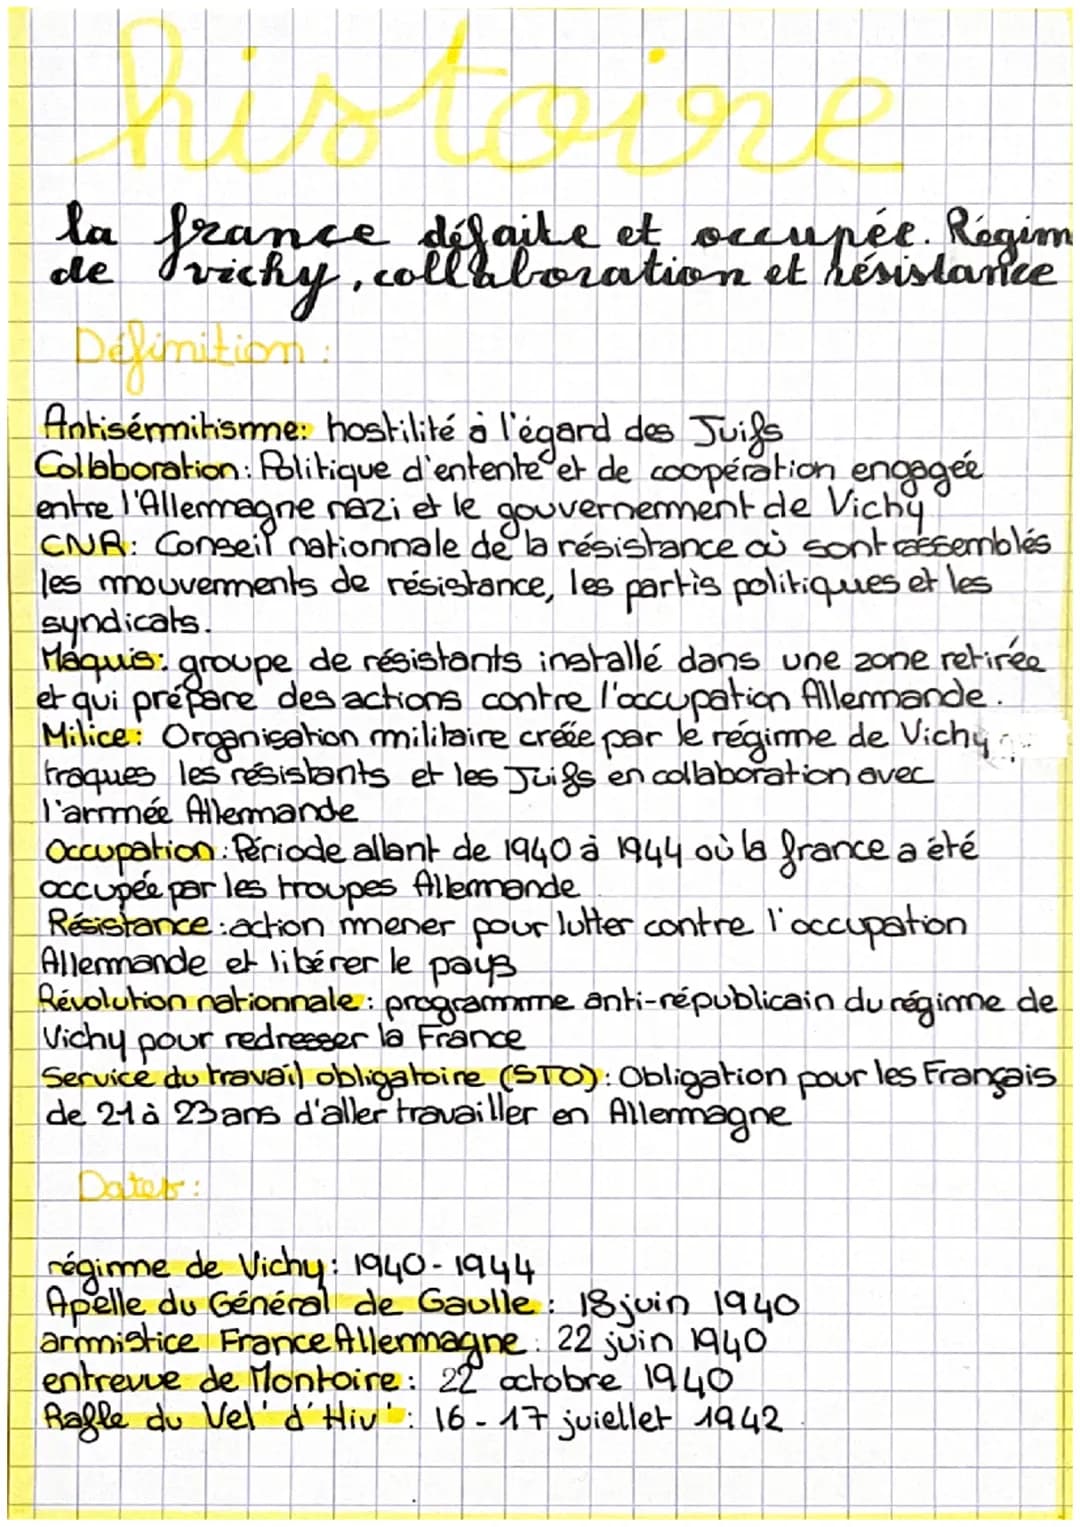 histoire
la france défaite et occupée. Régim
de vichy, collaboration et résistance
Définition :
Antisémmitisme: hostilité à l'égard des Juifs
Collaboration : Politique d'entente et de coopération engagée
entre l'Allemagne nazi et le gouvernement de Vichy
CNR: Conseil nationnale de la résistance où sont rassemblés
les mouvements de résistance, les partis politiques et les
syndicats.
Maquis: groupe de résistants installé dans une zone retirée
et qui prépare des actions contre l'occupation Allemande.
Milice: Organisation militaire créée par le régime de Vichy
traques les résistants et les Juifs en collaboration avec
l'armée Allemande
Occupation : Période allant de 1940 à 1944 où la france a été
occupée par les troupes Allemande
Résistance : action mener pour lutter contre l'occupation
Allemande et libérer le pays
Révolution nationnale : programme anti-républicain du régime de
Vichy pour redresser la France
Service du travail obligatoire (STO) : Obligation pour les Français
de 21 à 23 ans d'aller travailler en Allemagne
Dates :
régime de Vichy : 1940 - 1944
Apelle du Général de Gaulle : 18 juin 1940
armistice France Allemagne : 22 juin 1940
entrevue de Montoire : 22 octobre 1940
Rafle du Vel' d'Hiv' : 16 - 17 juiellet 1942